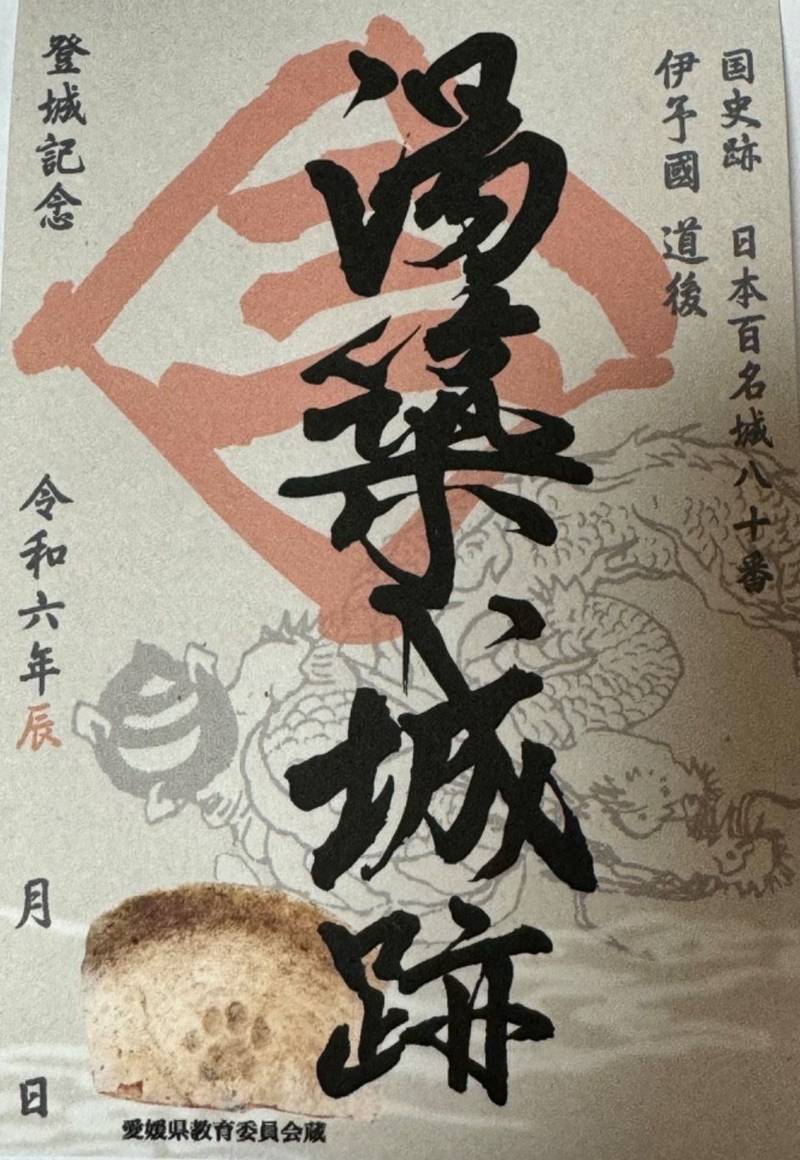 国史跡 日本百名城八十番
伊予國 道後
湯築城跡
登城記念
令和六年辰 月 日
愛媛県教育委員会蔵